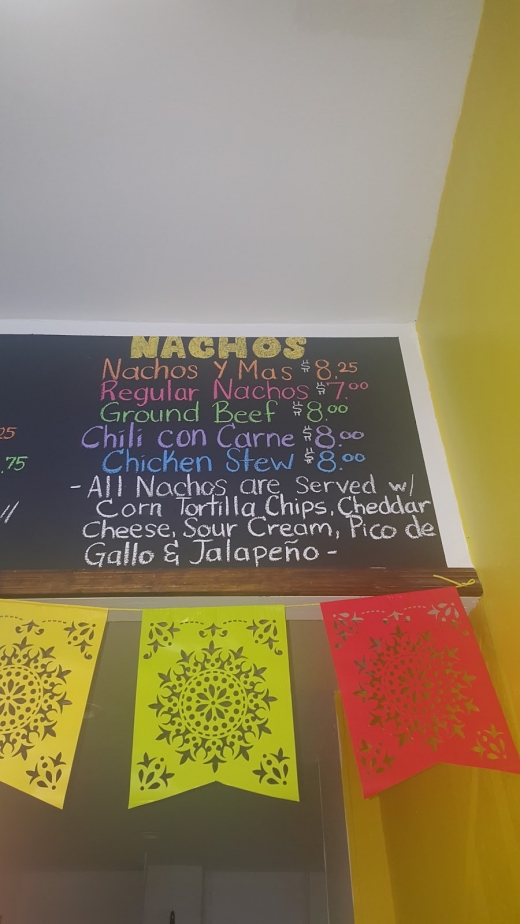 NACHOS
Nachos Y Mas $8.25
Regular Nachos $7.00
Ground Beef $8.00
25
Chili con Carne $8.00
.75
Chicken Stew $8.00
- All Nachos are Served w/
Corn Tortilla Chips, Cheddar
Cheese, Sour Cream, Pico de
Gallo & Jalapeño -